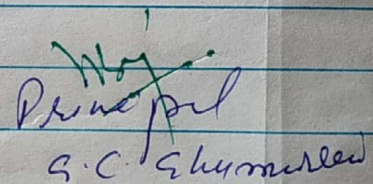 Principal
G.C. Ghumarwin